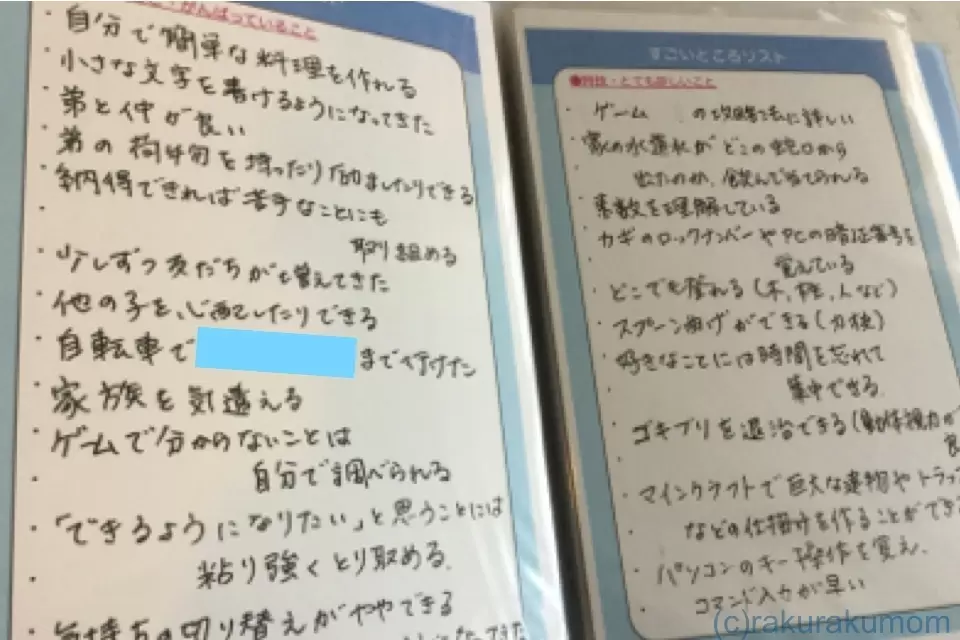 がんばっていること
・自分で簡単な料理を作れる
・小さな文字を書けるようになってきた
・弟と仲が良い
・弟の荷物を持ったり励ましたりできる
・納得できれば苦手なことにも
取り組める
・少しずつ友だちが増えてきた
・他の子を心配したりできる
・自転車で
まで行けた
・家族を気遣える
・ゲームで分からないことは
自分で調べられる
・「できるようになりたい」と思うことには
粘り強くとり組める。
・気持ちの切り替えがややできる
すごいところリスト
●特技・とても詳しいこと
・ゲーム の攻略法に詳しい
・家の水道水がどこの蛇口から
出たのか、飲んで当てられる
・素数を理解している
・カギのロックナンバーやPCの暗証番号を
覚えている
・どこでも登れる(木,柱,人など)
・スプーン曲げができる(力技)
・好きなことには時間を忘れて
集中できる。
・ゴキブリを退治できる(動体視力が
良
・マインクラフトで巨大な建物やトラップ
などの仕掛けを作ることができ
・パソコンのキー操作を覚え、
コマンド入力が早い
(c)rakurakumom